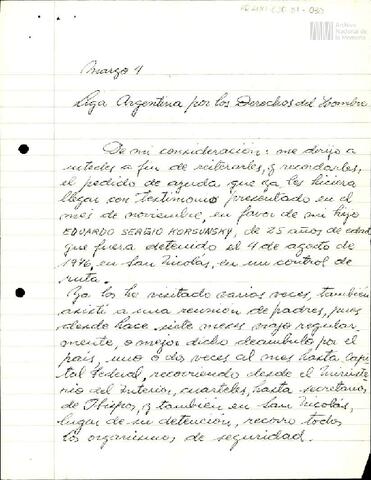 Archivo
Nacional de
la Memoria
Marzo 4
Liga Argentina por los Derechos del Hombre
De mi consideración: me dirijo a
ustedes a fin de reiterarles, y recordarles,
el pedido de ayuda que ya les hiciera
llegar con testimonio presentado en el
mes de noviembre, en favor de mi hijo
EDUARDO SERGIO KORSUNSKY, de 25 años de edad
que fuera detenido el 4 de agosto de
1976, en San Nicolás, en un control de
ruta.
Ya los he visitado varias veces, también
asistí a una reunión de padres, pues
desde hace siete meses viajo regular
mente, o mejor dicho deambulo por el
país, uno o dos veces al mes hasta Capi
tal Federal, recorriendo desde el Ministe
rio del Interior, cuarteles, hasta secretarios
de Obispos, y también en San Nicolás,
lugar de su detención, recorro todos
los organismos de seguridad.